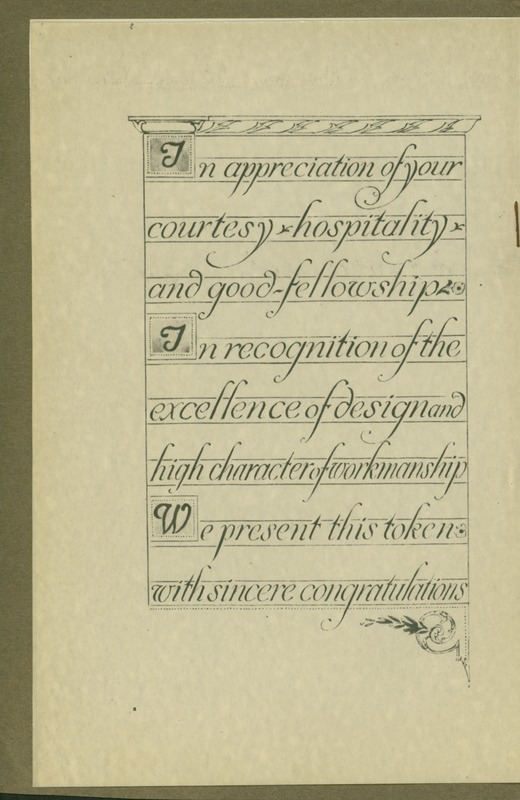 In appreciation of your
courtesy hospitality
and good-fellowship
In recognition of the
excellence of design and
high character of workmanship
We present this token
with sincere congratulations